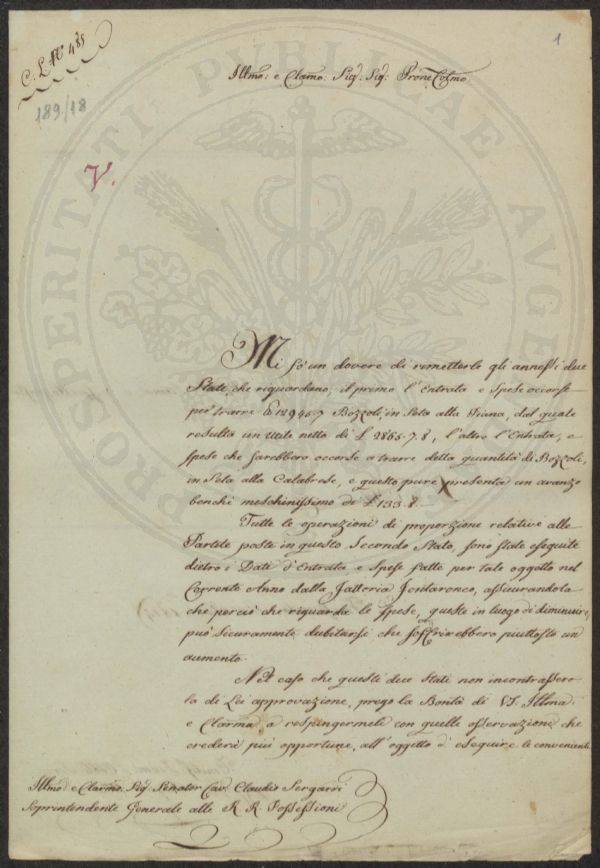 1
C. L. N.° 485
189/18
V.
Illmo: e Clamo: Sig: Sig: Prone Colmo
Mi fò un dovere di rimetterle gli annessi due
Stati, che riguardano, il primo l'Entrata e Spese occorse
per trarre 12946.7 Bozzoli, in Seta alla Piana, dal quale
resulta un Utile netto di £ 2865.7.8, l'altro l'Entrata, e
Spese che sarebbero occorse a trarre detta quantità di Bozzoli,
in Seta alla Calabrese, e questo pure presenta un avanzo
benchi meschinissimo di £ 133.8.
Tutte le operazioni di proporzione relative alle
Partite poste in questo Secondo Stato, sono state eseguite
dietro i Dati d'Entrata e Spese fatte per tale oggetto nel
Corrente Anno dalla Fattoria, assicurandola
che perciò che riguarda le Spese, queste in luogo di diminuire,
può sicuramente dubitarsi che soffrirebbero piuttosto un
aumento.
Nel caso che questi due Stati non incontrassero
la di Lei approvazione, prego la Bontà di VS. Illma:
e Clarma: a respingermeli con quelle osservazione, che
crederà più opportune, all'oggetto d'eseguire le convenienti
Illmo: e Clarmo: Sig: Senator Cav. Claudio Sergardi
Soprintendente Generale alle R R Possessioni
PROSPERITATI PUBLICAE AUGE